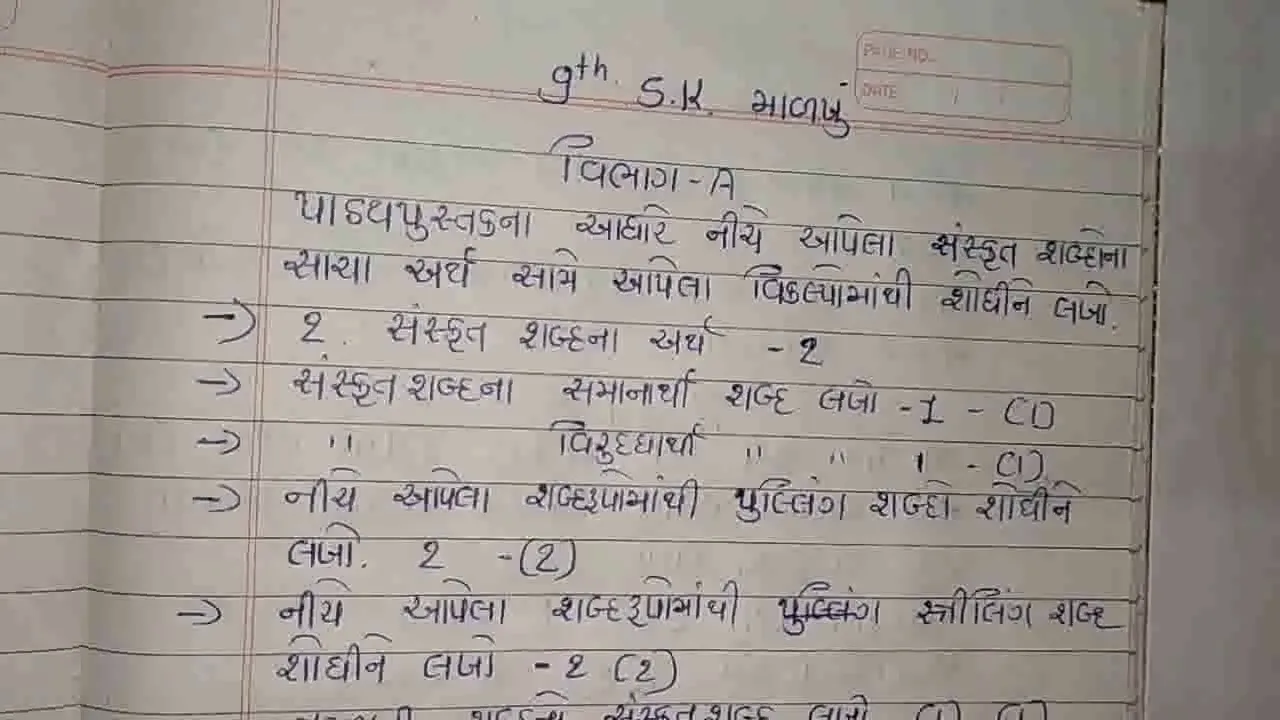 PAGE NO.
DATE / /
9th. S.K. માળખું
વિભાગ - A
પાઠયપુસ્તકના આધારે નીચે આપેલા સંસ્કૃત શબ્દોના
સાચા અર્થ સામે આપેલા વિકલ્પોમાંથી શોધીને લખો.
→ 2. સંસ્કૃત શબ્દના અર્થ - 2
→ સંસ્કૃત શબ્દના સમાનાર્થી શબ્દ લખો - 1 - (1)
→ " વિરુદ્ધાર્થી " " 1 - (1)
→ નીચે આપેલા શબ્દરૂપોમાંથી પુલ્લિંગ શબ્દો શોધીને
લખો. 2 - (2)
→ નીચે આપેલા શબ્દરૂપોમાંથી પુલ્લિંગ સ્ત્રીલિંગ શબ્દ
શોધીને લખો - 2 (2)
સંસ્કૃત શબ્દ લખો (1) (1)